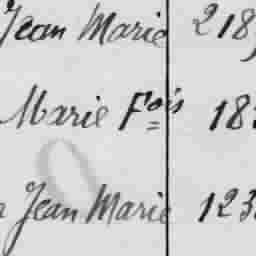 Jean Marie 218
Marie Fois 18
Jean Marie 123